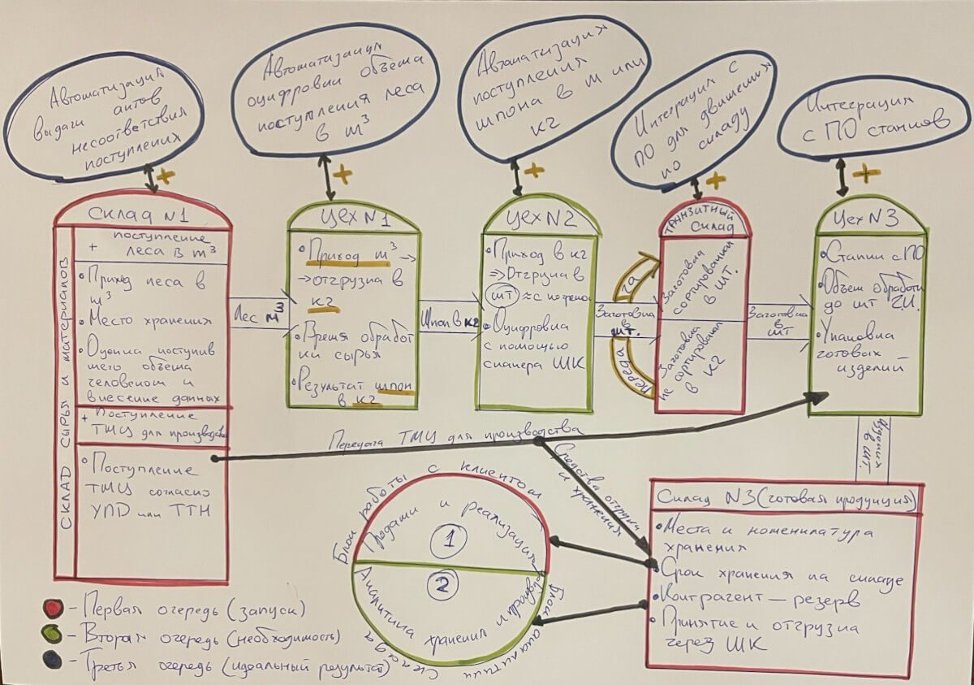 Автоматизация
выдачи актов
несоответствия
поступлениях
Автоматизация
оцифровки объема
поступления леса
в m³
Автоматизация
поступления
шпона в м или
кг
Интеграция с
ПО для движения
по складу
Интеграция
с ПО станков
+
+
+
+
+
Склад N1
СКЛАД СЫРЬЯ И МАТЕРИАЛОВ
+ поступление
леса в m³
• Приход леса в
m³
• Место хранения
• Оценка поступив
шего объема
человеком и
внесение данных
+ Поступление
ТМЦ для производства
• Поступление
ТМЦ согласно
УПД или ТТН
Лес м³
Цех N1
• Приход m³ →
→ отгрузка в
кг
• Время обработ
ки сырья
• Результат шпон
в кг
Шпон в кг
Цех N2
• Приход в кг
⇒ Отгрузка в
шт ≈ с
• Оцифровка
с помощью
сканера ШК
Заготовка
в
шт.
ТРАНЗИТНЫЙ
Склад
Заготовка
сортированная
в шт.
Заготовка
не сортированая
в кг
Заготовка
в шт
Цех N3
• Станки с ПО
• Объем обработки
до шт
• Упаковка
готовых
изделий
Передача ТМЦ для производства
Средства отгрузки
и хранения
в шт.
Склад N3 (готовая продукция)
• Места и номенклатура
хранения
• Срок хранения на складе
• Контрагент — резерв
• Принятие и отгрузка
через ШК
Блок работы с клиентом
Продажи и реализация
1
2
Аналитика хранения
Блок аналитики
Склада
- Первая очередь (запуск)
- Вторая очередь (необходимость)
- Третья очередь (идеальный результат)